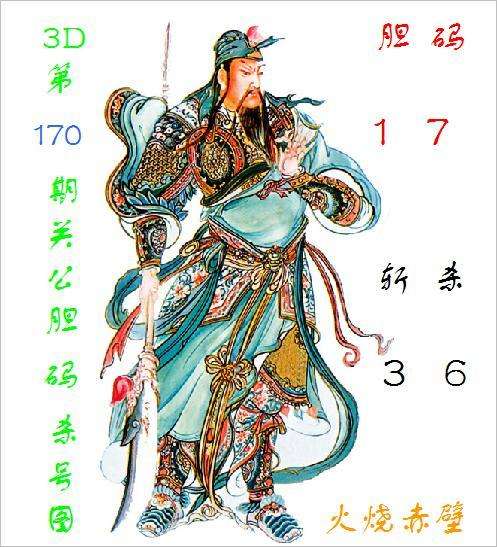 3D
第
170
期关公胆码杀号图
胆码
1 7
斩杀
3 6
火烧赤壁